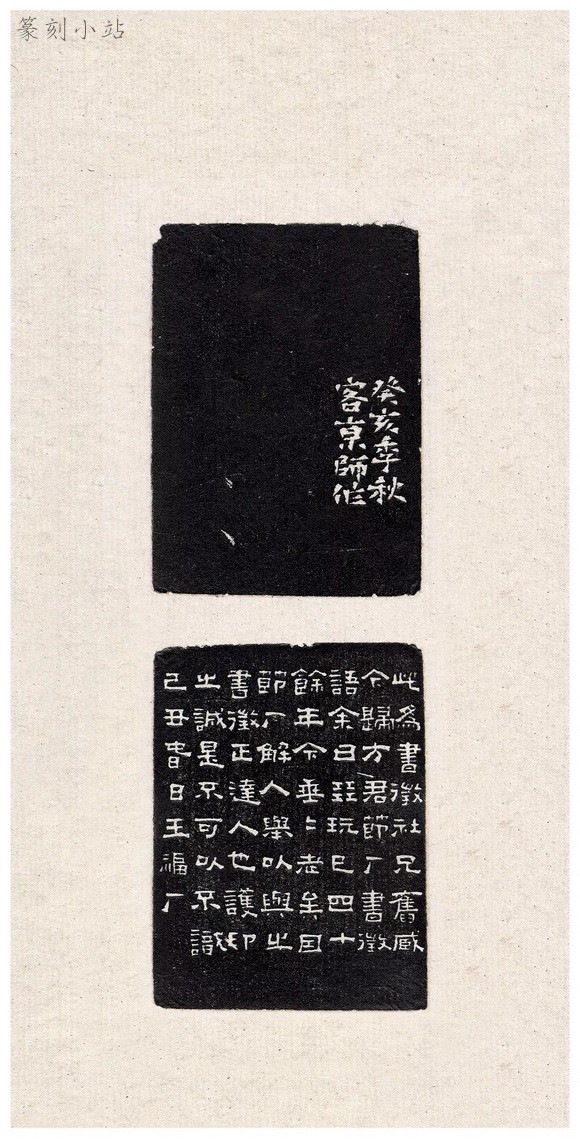 篆刻小站
癸亥季秋
客京師作
此為書徵社兄舊藏
今歸方君節厂書徵
語余曰玩已四十
餘年今垂〻老矣因
節厂解人舉以與之
書徵正達人也護印
之誠是不可以不識
己丑春日王福厂